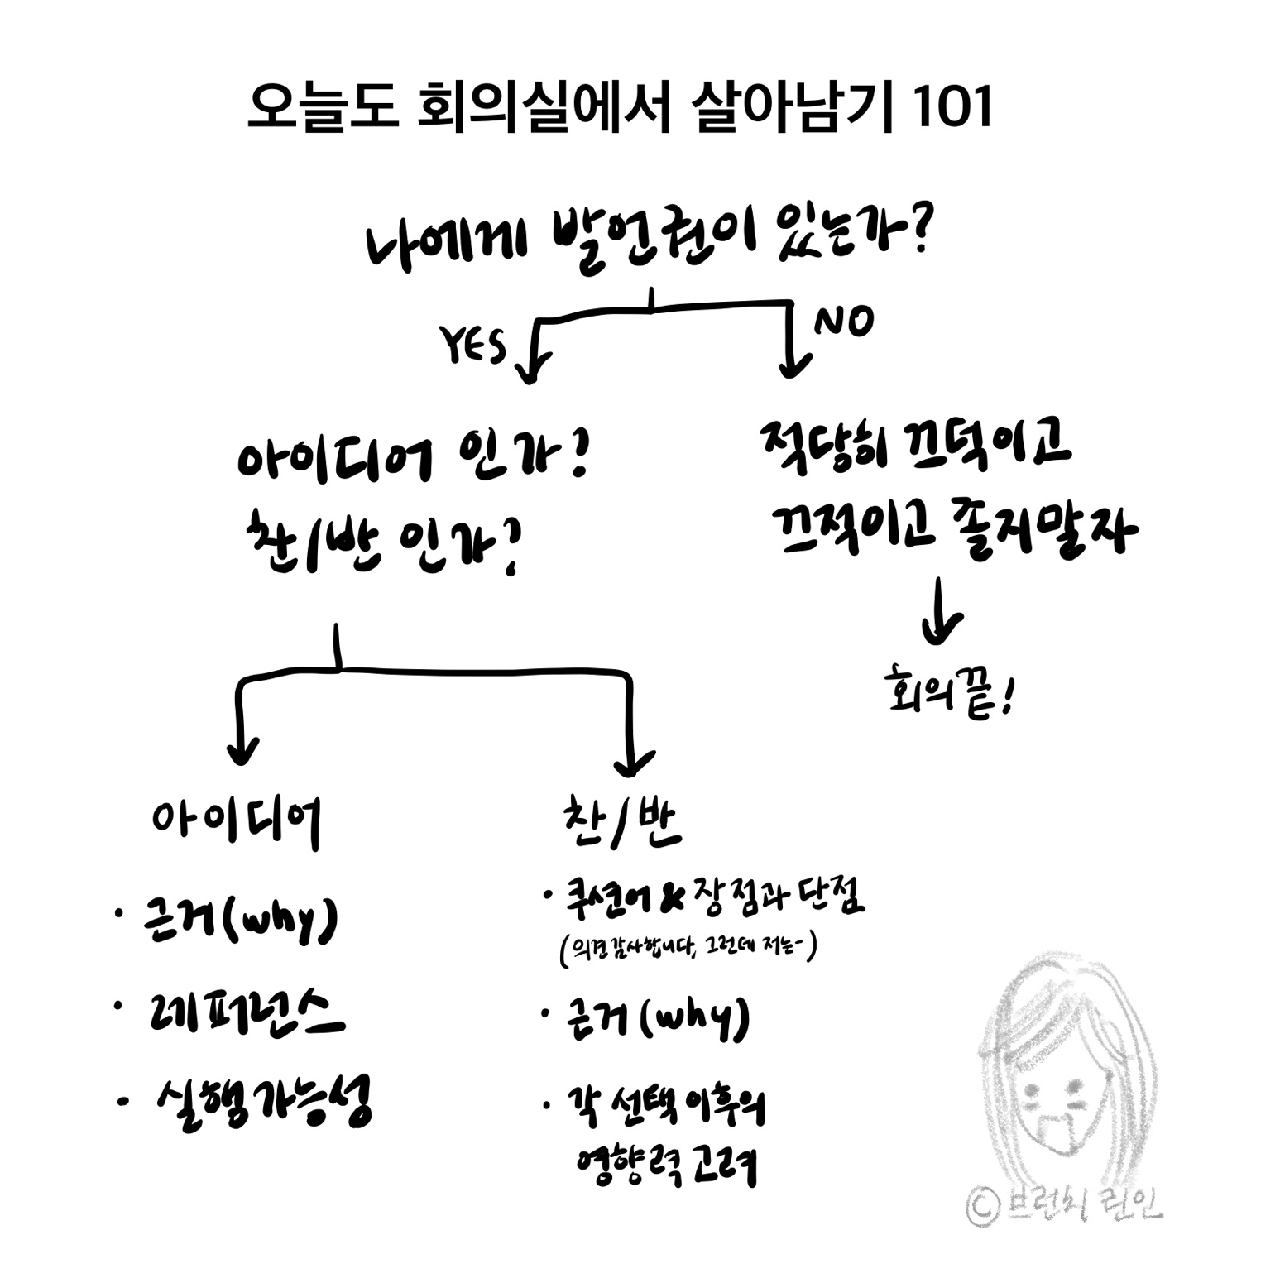 오늘도 회의실에서 살아남기 101
나에게 발언권이 있는가?
YES
NO
아이디어 인가?
찬/반 인가?
적당히 끄덕이고
끄적이고 졸지말자
회의끝!
아이디어
· 근거(why)
· 레퍼런스
· 실행가능성
찬/반
· 쿠션어 & 장점과 단점
(의견감사합니다, 그런데 저는-)
· 근거(why)
· 각 선택 이후의
영향력 고려
© 브런치 퀸인